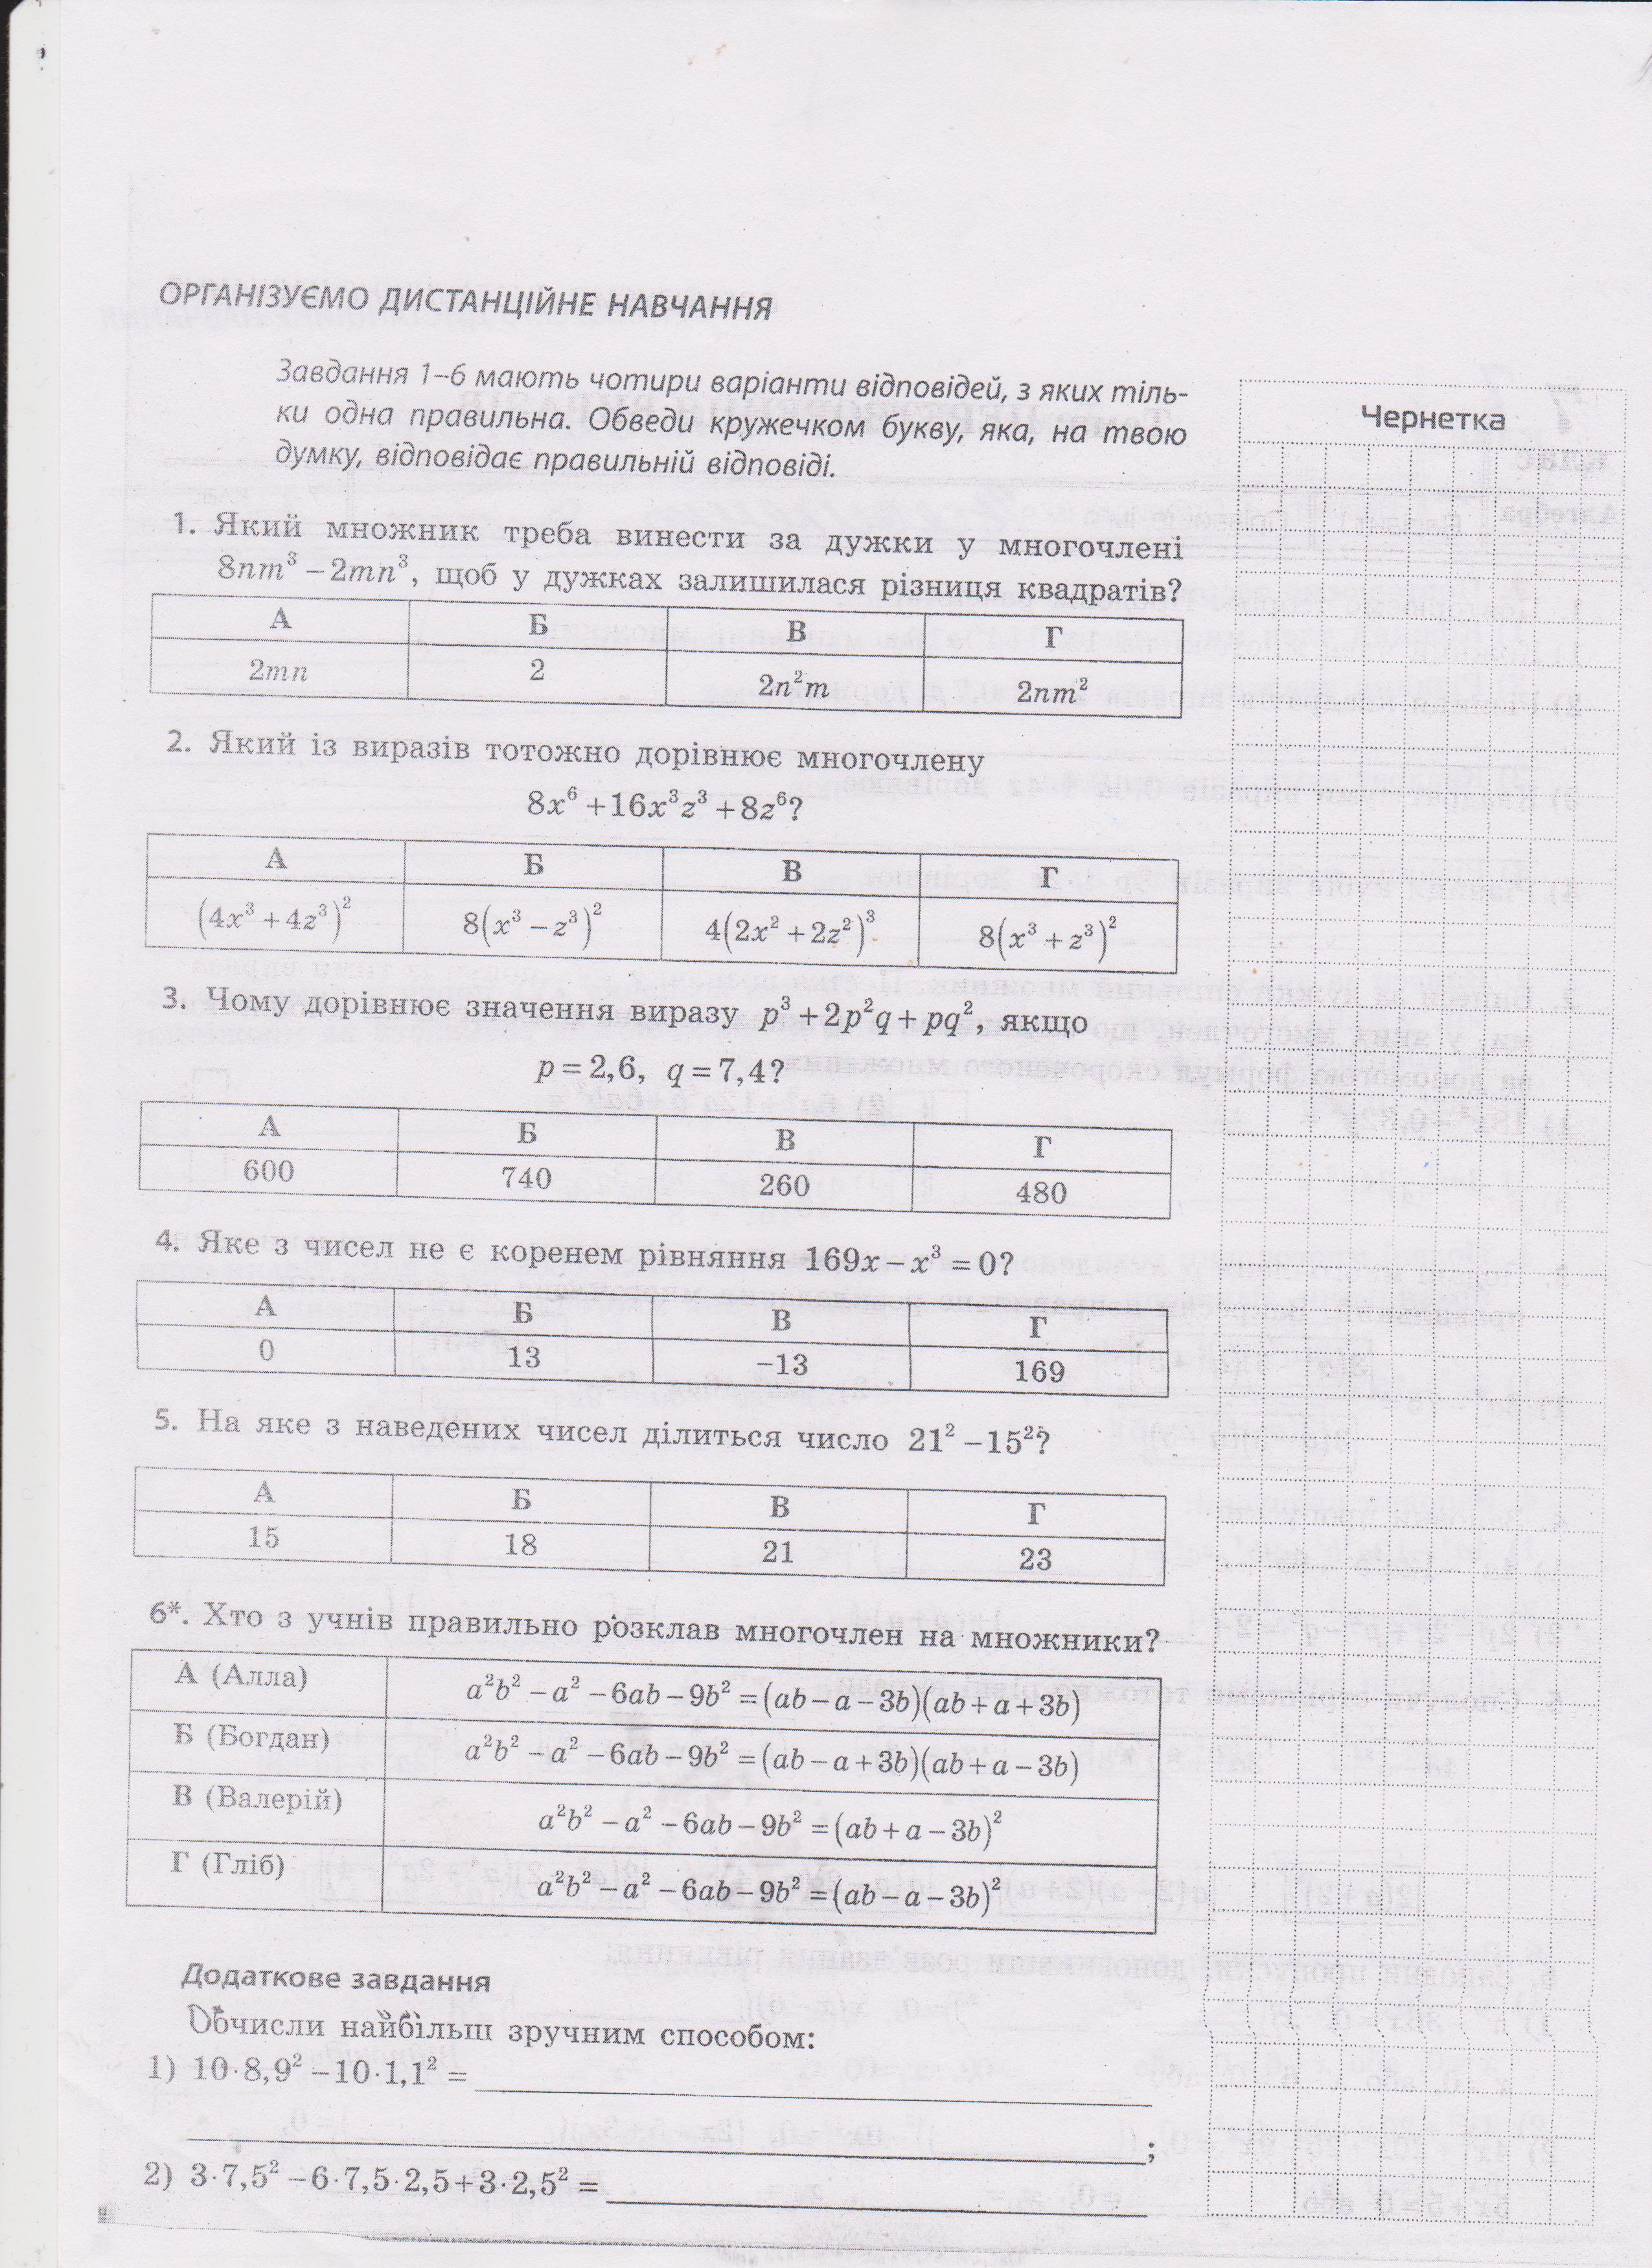 ОРГАНІЗУЄМО ДИСТАНЦІЙНЕ НАВЧАННЯ
Завдання 1–6 мають чотири варіанти відповідей, з яких тіль-
ки одна правильна. Обведи кружечком букву, яка, на твою
думку, відповідає правильній відповіді.
Чернетка
1. Який множник треба винести за дужки у многочлені
8nm³ – 2mn³, щоб у дужках залишилася різниця квадратів?
А Б В Г
2mn 2 2n²m 2nm²
2. Який із виразів тотожно дорівнює многочлену
8x⁶ + 16x³z³ + 8z⁶?
А Б В Г
(4x³ + 4z³)² 8(x³ – z³)² 4(2x² + 2z²)³ 8(x³ + z³)²
3. Чому дорівнює значення виразу p³ + 2p²q + pq², якщо
p = 2,6, q = 7,4?
А Б В Г
600 740 260 480
4. Яке з чисел не є коренем рівняння 169x – x³ = 0?
А Б В Г
0 13 –13 169
5. На яке з наведених чисел ділиться число 21² – 15²?
А Б В Г
15 18 21 23
6*. Хто з учнів правильно розклав многочлен на множники?
А (Алла) a²b² – a² – 6ab – 9b² = (ab – a – 3b)(ab + a + 3b)
Б (Богдан) a²b² – a² – 6ab – 9b² = (ab – a + 3b)(ab + a – 3b)
В (Валерій) a²b² – a² – 6ab – 9b² = (ab + a – 3b)²
Г (Гліб) a²b² – a² – 6ab – 9b² = (ab – a – 3b)²
Додаткове завдання
Обчисли найбільш зручним способом:
1) 10·8,9² – 10·1,1² =
;
2) 3·7,5² – 6·7,5·2,5 + 3·2,5² =